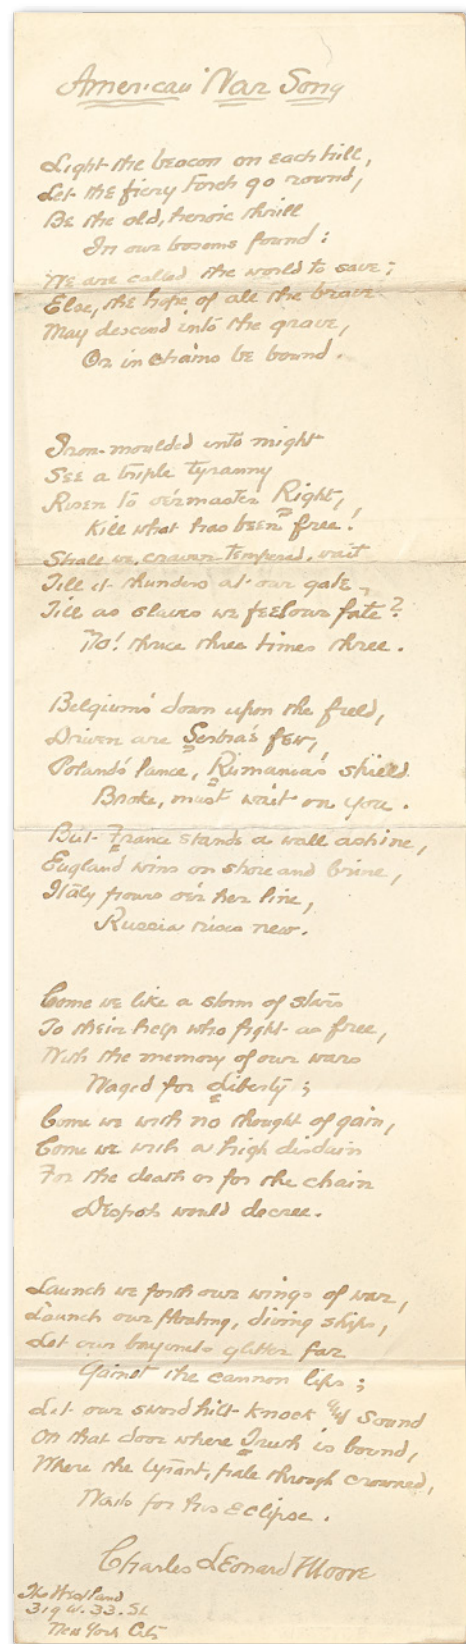 American War Song
Light the beacon on each hill,
Let the fiery torch go round,
Be the old, heroic thrill
In our bosoms found:
We are called the world to save;
Else, the hope of all the brave
May descend into the grave,
Or in chains be bound.
Iron-moulded into might
See a triple tyranny
Risen to o'ermaster Right,
Kill what has been free!
Shall we, craven-tempered, wait
Till it thunders at our gate,
Till as slaves we feel our fate?
No! thrice three times three.
Belgium's down upon the field,
Driven are Serbia's few,
Poland's lance, Rumania's shield
Broke, must wait on you.
But France stands a wall ashine,
England wins on shore and brine,
Italy pours o'er her line,
Russia rises new.
Come we like a storm of stars
To their help who fight as free,
With the memory of our wars
Waged for Liberty;
Come we with no thought of gain,
Come we with a high disdain
For the death or for the chain
Despots would decree.
Launch we forth our wings of war,
Launch our floating, diving ships,
Let our bayonets glitter far
Gainst the cannon lips;
Let our sword hilt knock and sound
On that door where Truth is bound,
Where the tyrant, pale through crowned,
Waits for his eclipse.
Charles Leonard Moore
The Westland
319 W. 33. St
New York City